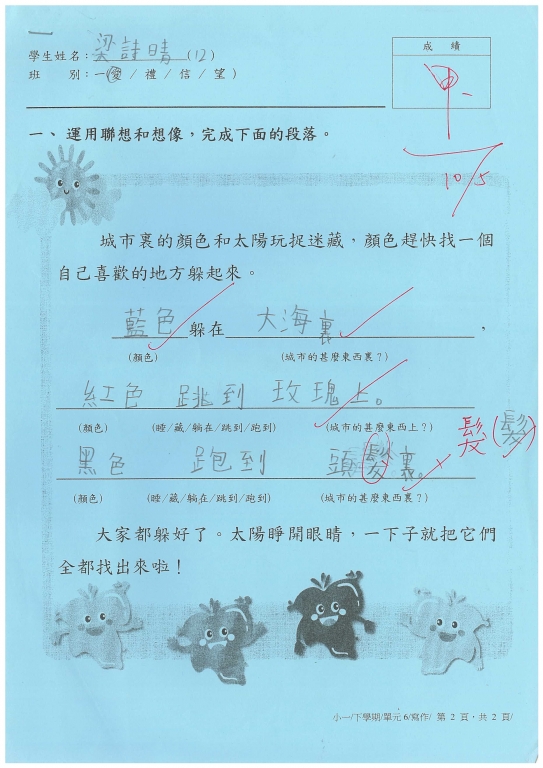 一
學生姓名：梁詩晴(12)
班　　別：一(愛 / 禮 / 信 / 望)
成 績
甲
10/5
一、運用聯想和想像，完成下面的段落。
城市裏的顏色和太陽玩捉迷藏，顏色趕快找一個
自己喜歡的地方躲起來。
藍色躲在大海裏，
(顏色) (城市的甚麼東西裏？)
紅色 跳到 玫瑰上。
(顏色) (睡/藏/躺在/跳到/跑到) (城市的甚麼東西上？)
髮(髮)
黑色 跑到 頭髮裏。
(顏色) (睡/藏/躺在/跳到/跑到) (城市的甚麼東西裏？)
大家都躲好了。太陽睜開眼睛，一下子就把它們
全都找出來啦！
小一/下學期/單元6/寫作/ 第 2 頁，共 2 頁/